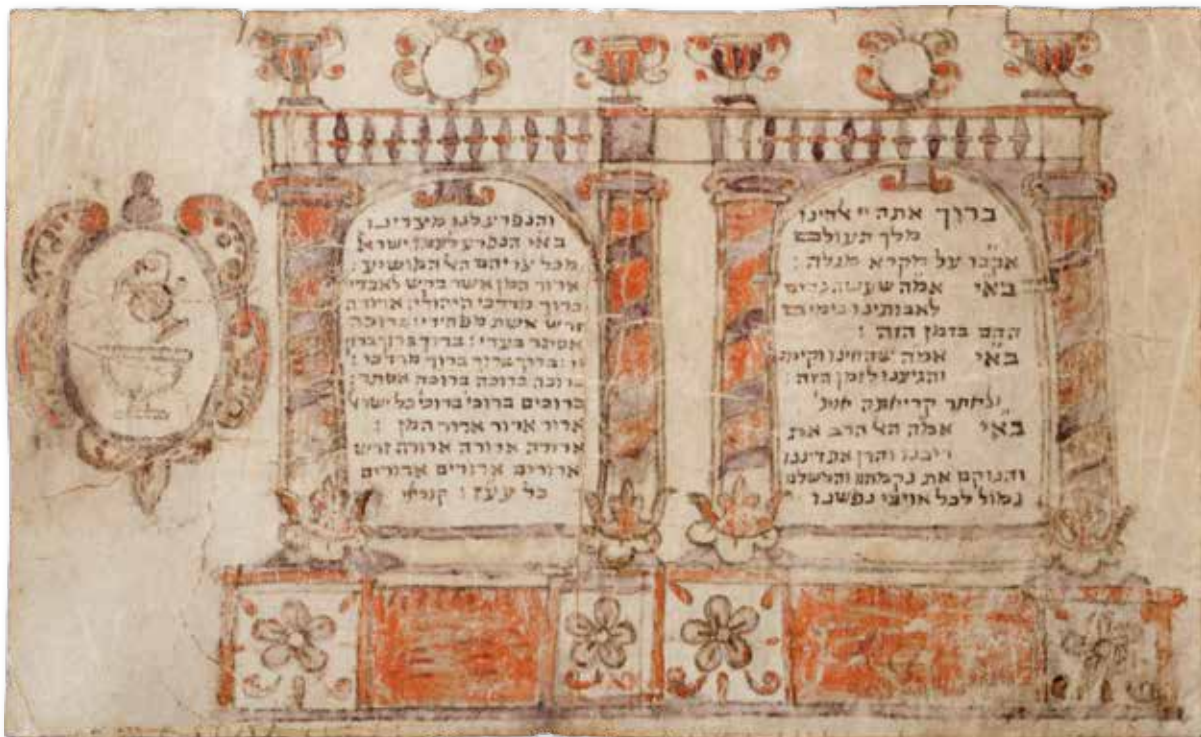 ברוך אתה יי אלהינו
מלך העולם
אקבו על מקרא מגלה :
בא״י אמה שעשה נסים
לאבותינו בימים
ההם בזמן הזה :
בא״י אמה שהחינו וקימ
והגיענו לזמן הזה :
ולאחר קריאתה יאמ'
בא״י אמה הא׳ הרב את
ריבנו והדן את דיננו
והנוקם את נקמתנו והמשלם
גמול לכל אויבי נפשנו :
והנפרע לנו מצרינו
בא״י הנפרע לעמו ישרא׳
מכל צריהם הא׳ המושיע :
ארור המן אשר בקש לאבדי
ברוך מרדכי היהודי : ארורה
זרש אשת מפחידי ברוכה
אסתר בעדי : ברוך ברוך ברוך
ברוך ברוך ברוך מרדכי :
ברוכה ברוכה ברוכה אסתר :
ברוכים ברוכי׳ ברוכי׳ כל ישרא׳
ארור ארור ארור המן :
ארורה ארורה ארורה זרש
ארורים ארורים ארורים
כל